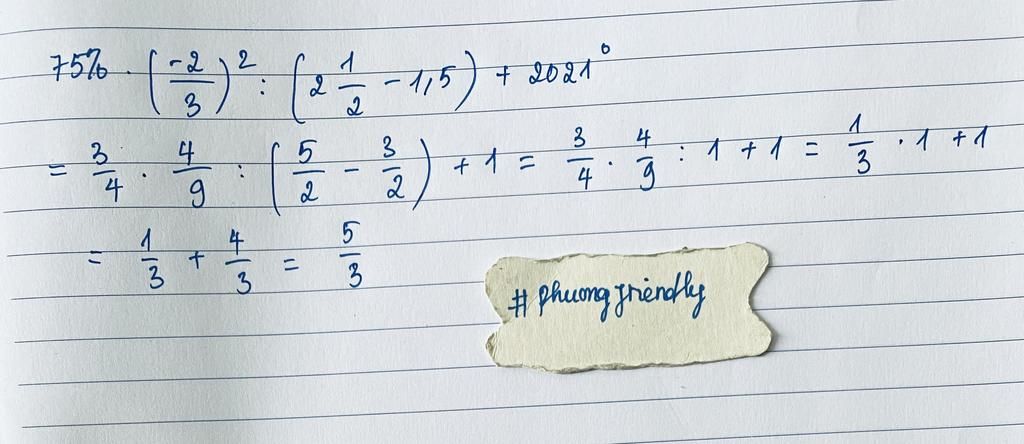 75% . (-2/3)² : (2 1/2 - 1,5) + 2021⁰
= 3/4 . 4/9 : (5/2 - 3/2) + 1 = 3/4 . 4/9 : 1 + 1 = 1/3 . 1 + 1
= 1/3 + 4/3 = 5/3
# phuong friendly